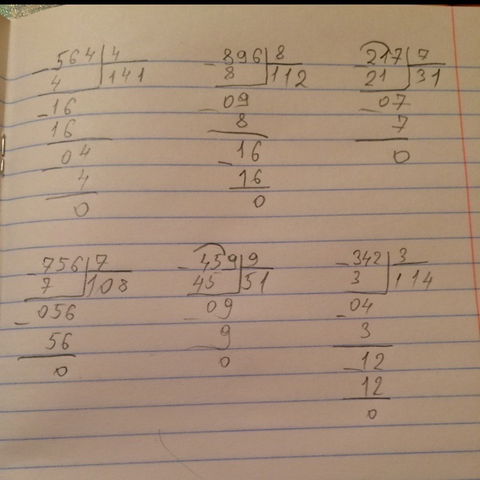 - 564 | 4   - 896 | 8   217 | 7
4 | 141   8 | 112   21 | 31
- 16   - 09   - 07
16   8   7
- 04   - 16   0
4   16
0   0
- 756 | 7   - 459 | 9   - 342 | 3
7 | 108   45 | 51   3 | 114
- 056   - 09   - 04
56   9   3
0   0   - 12
12
0